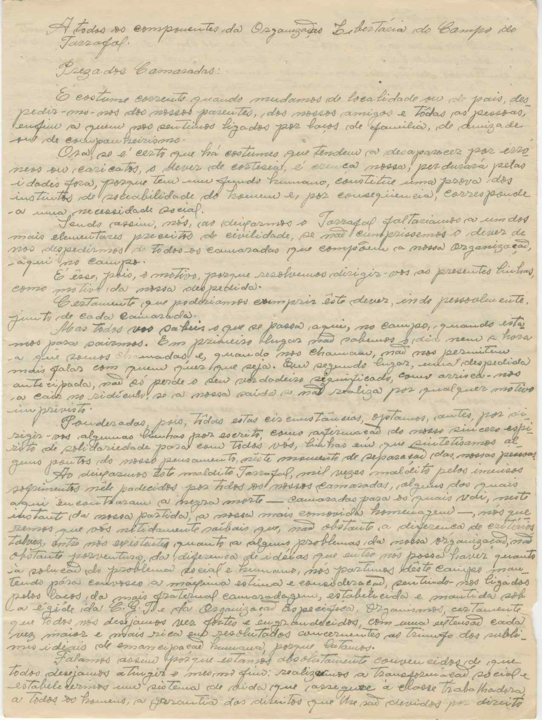 A todos os componentes da Organização Libertária do Campo do
Tarrafal.
Prezados Camaradas:
É costume corrente quando mudamos de localidade ou de país, des-
pedir-mo-nos dos nossos parentes, dos nossos amigos e todas as pessoas,
enfim a quem nos sentimos ligados por laços de família, de amizade
ou de companheirismo.
Ora, se é certo que há costumes que tendem a desaparecer por erró-
neos ou caricatos, o dever de cortesia, é crença nossa, perdurará pelas
idades fora, porque tem um fundo humano, constitue uma prova dos
instintos de sociabilidade do homem e, por conseguência, corresponde
a uma necessidade social.
Sendo assim, nós, ao deixarmos o Tarrafal faltaríamos a um dos
mais elementares preceitos de civilidade, se não cumprissemos o dever de
nos despedirmos de todos os camaradas que compõem a nossa organização,
aqui no campo.
É esse, pois, o motivo, porque resolvemos dirigir-vos as presentes linhas,
como motivo da nossa despedida.
Certamente que poderíamos cumprir êste dever, indo pessoalmente,
junto de cada camarada.
Mas todos vós sabeis o que se passa aqui, no campo, quando esta-
mos para sairmos. Em primeiro lugar não sabemos o dia nem a hora
a que somos chamados e, quando nos chamam, não nos permitem
mais falar com quem quer que seja. Em segundo lugar, uma despedida
antecipada, não só perde o seu verdadeiro significado, como arrisca-nos
a cair no ridículo se a nossa saída se não realiza por qualquer motivo
imprevisto.
Ponderadas, pois, todas estas circunstâncias, optámos, antes, por di-
rigir-vos algumas linhas por escrito como afirmação do nosso sincero espí-
rito de solidariedade para com todos vós, linhas em que sintetisamos al-
guns pontos do nosso pensamento, neste momento de separação das nossas pessoas.
Ao deixarmos este maldito Tarrafal, mil vezes maldito pelos imensos
sofrimentos nele padecidos por todos os nossos camaradas, alguns dos quais
aqui encontraram a negra morte — camaradas para os quais vai, neste
instante da nossa partida, a nossa mais comovida homenagem — nós que-
remos que vós saibais que, não obstante a diferença de critérios
talvez entre nós existentes quanto a alguns problemas da nossa organização, não
obstante porventura, da diferença de ideias que entre nós possa haver quanto
à solução do problema social e humano, nós partimos deste campo man-
tendo para convosco a máxima estima e consideração, sentindo-nos ligados
pelos laços da mais fraternal camaradagem, estabelecida e mantida sob
a égide da C.G.T. e da Organização Específica. Organismos, certamente
que todos nós desejamos ver fortes e engrandecidos, com uma extensão cada
vez maior e mais rica em resultados concernentes ao triunfo dos subli-
mes ideais de emancipação humana, porque lutamos.
Falamos assim porque estamos absolutamente convencidos de que
todos desejamos atingir o mesmo fim: realizarmos a transformação social e
estabelecermos um sistema de vida que assegure à classe trabalhadora
a todos os homens, a garantia dos direitos que lhe são devidos por direito